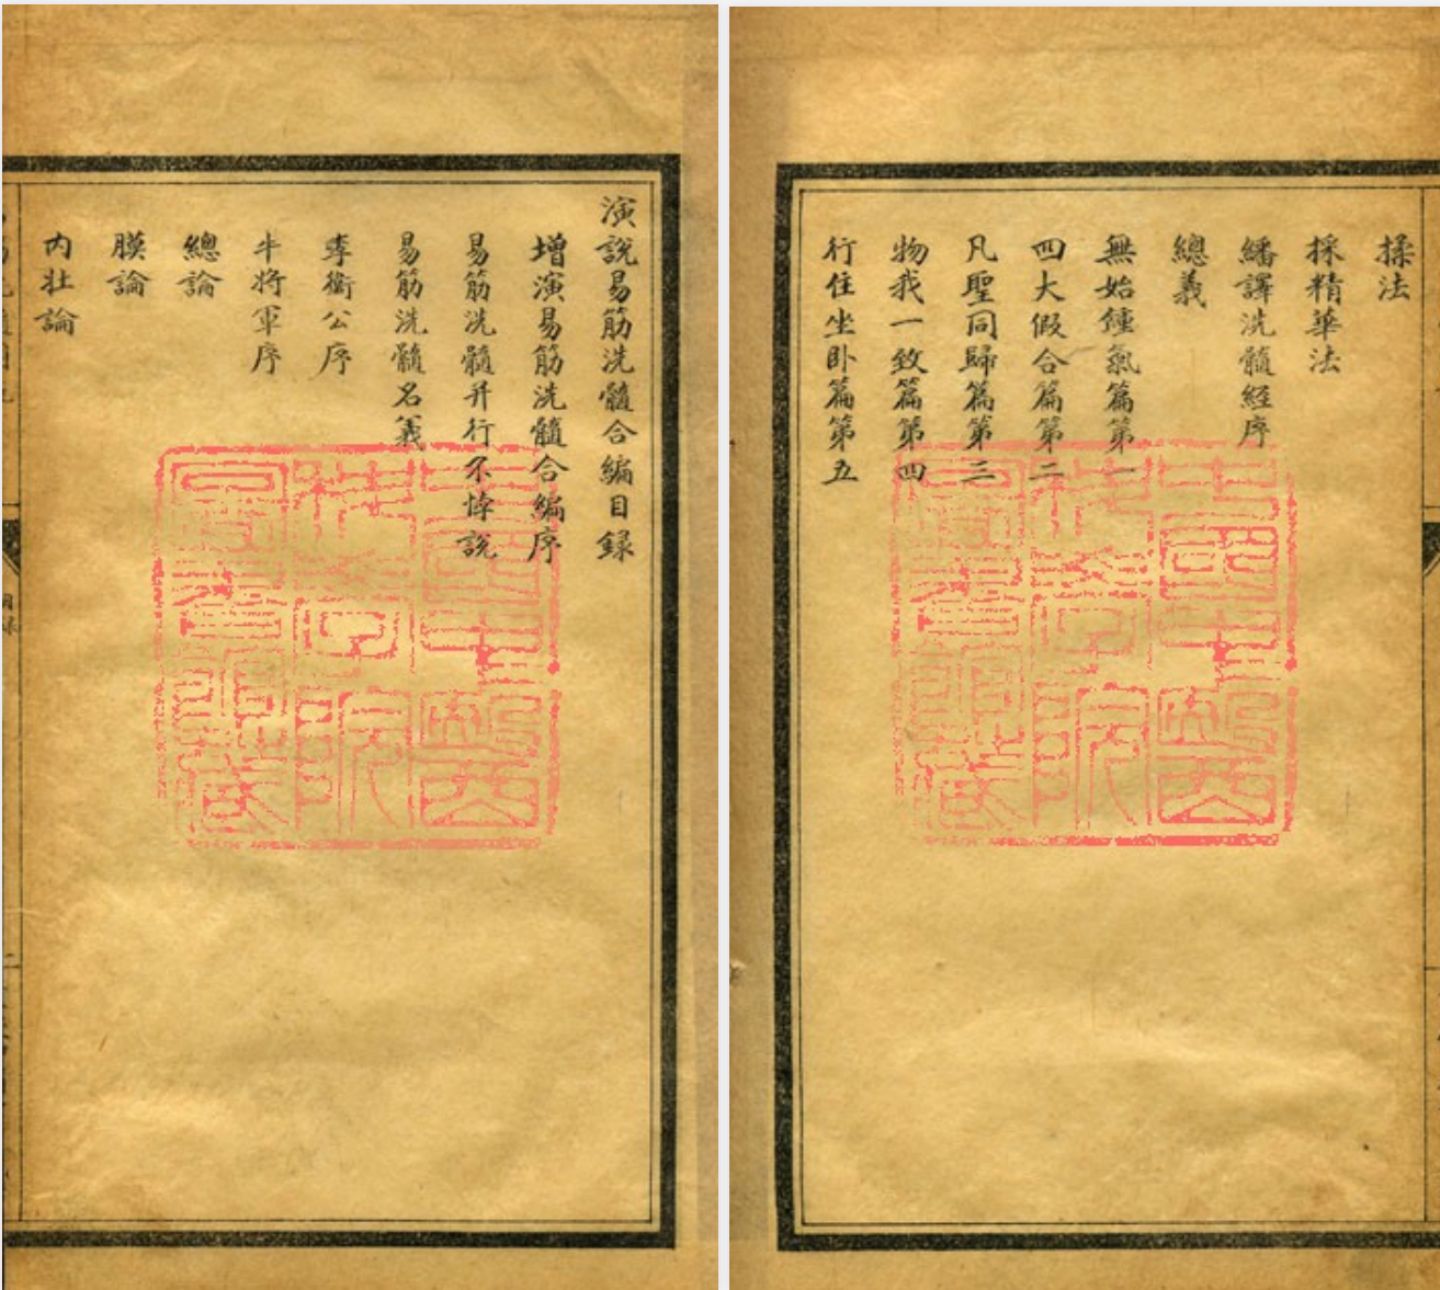 演說易筋洗髓合編目録
增演易筋洗髓合編序
易筋洗髓并行不悖說
易筋洗髓名義
李衞公序
牛將軍序
總論
膜論
內壯論
揉法
採精華法
繙譯洗髓經序
總義
無始鍾氣篇第一
四大假合篇第二
凡聖同歸篇第三
物我一致篇第四
行住坐卧篇第五